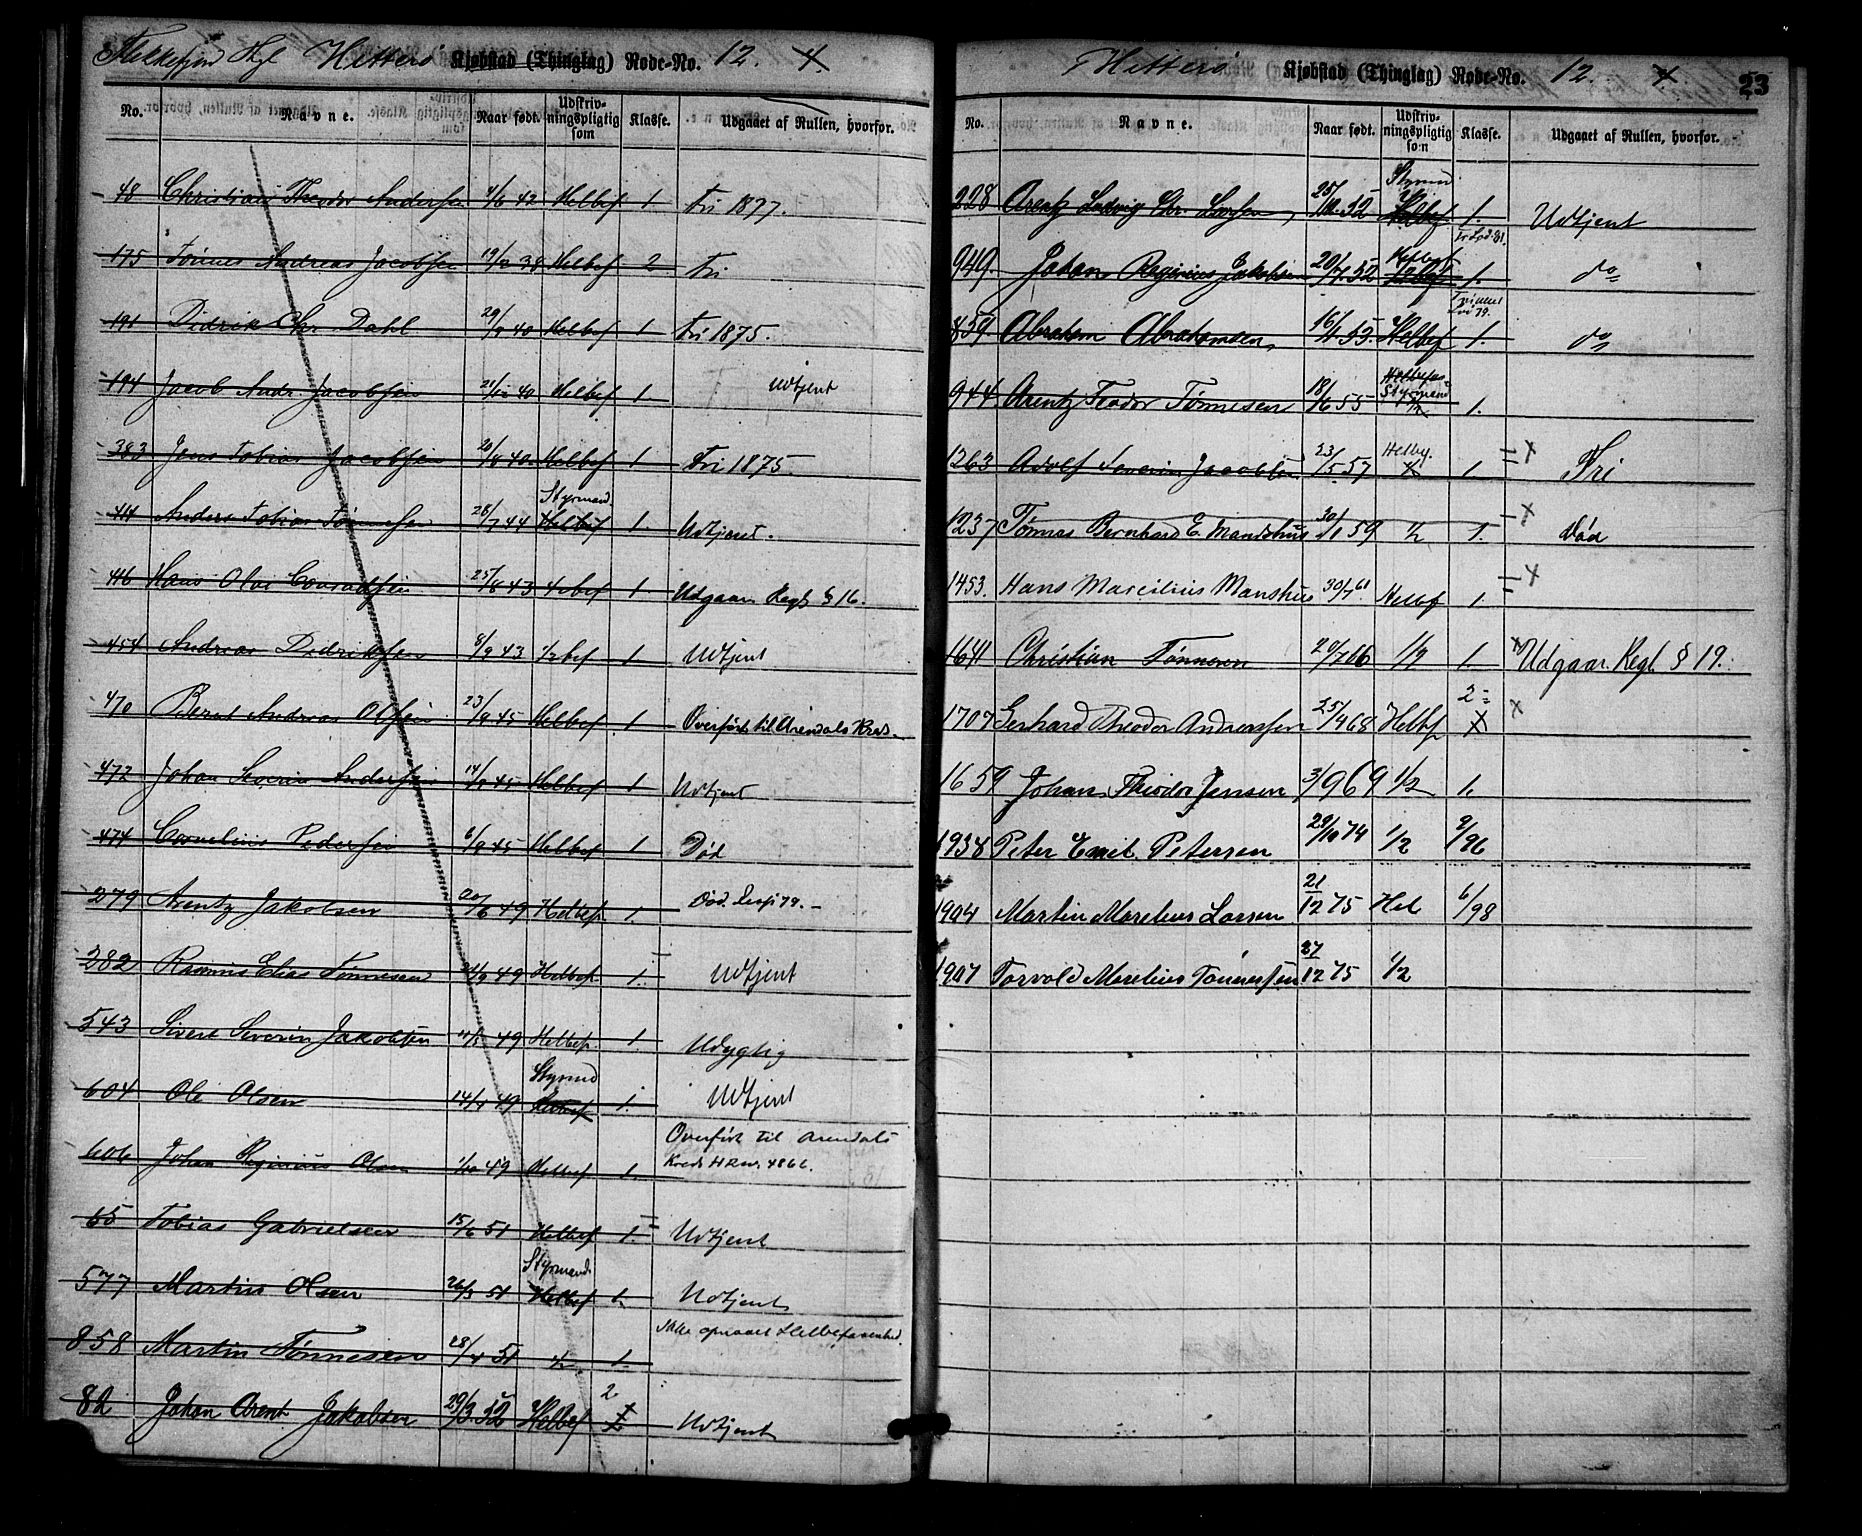 Flekkefjord Hgl Hitterö Kjøbstad (Thinglag) Rode-No. 12. 4.
No. Navne. Naar født. Udskriv-ningspligtig som Klasse. Udgaaet af Rullen, hvorfor.
48 Christian Theodor Andersen 42 Helbef 1 Fri 1877.
175 Tønnes Andreas Jacobsen 38 Helbef 2 Fri
191 Didrik Chr. Dahl 29/ 40 Helbef 1 Fri 1875.
194 Jacob Andr. Jacobsen 21/12 40 Helbef 1 Udtjent
383 Jens Tobias Jacobsen 20/8 40 Helbef 1 Fri 1875.
Styrmand
414 Anders Tobias Tønnesen 28/7 44 Helbef 1. Udtjent.
416 Hans Olai Conradsen 25/8 43 1/2bef 1 Udgaar Regl § 16.
454 Andreas Didriksen 8/9 43 1/2bef 1 Udtjent
470 Bernt Andreas Olsen 23/9 45 Helbef 1 Overført til Arendals Kreds.
472 Johan Severin Andersen 14/ 45 Helbef 1 Udtjent
474 Cornelius Pedersen 6/9 45 Helbef 1. Død
279 Arentz Jakobsen 20/6 49 Helbef. 1. Død 79.
282 Rasmus Elias Tønnesen /9 49 Helbef. 1. Udtjent
543 Sivert Severin Jakobsen 49 Helbef. 1. Udygtig
Styrmd
604 Ole Olsen 14/ 49 Helbef 1. Udtjent
Overført til Arendals
606 Johan Reginius Olsen 49 Helbef 1. Kreds 4866.
65 Tobias Gabrielsen 15/6 51 Helbef 1. Udtjent
Styrmand
577 Martin Olsen 26/3 51 Helbef 1. Udtjent
Ikke opnaaet Helbefarenhed.
858 Martin Tønnesen 28/4 51 1/2 1.
82 Johan Arent Jakobsen 29/3 52 Helbef 2 Udtjent
Hitterö Kjøbstad (Thinglag) Rode-No. 12. 4. 23
No. Navne. Naar født. Udskriv-ningspligtig som Klasse. Udgaaet af Rullen, hvorfor.
Styrmd
228 Arentz Ludvig Chr. Larsen, 25/10 52 Helbef 1. Udtjent
949. Johan Reginius Jakobsen 20/7 52 1. do
859 Abraham Abrahamsen, 16/11 53. Helbef 1. do
Helbefar
Styrmand
944 Arentz Teodor Tønnesen 18/6 55 1/2 1.
1263 Adolf Severin Jacobsen 23/5 57 Helbf. 1. Fri
1237 Tønnes Bernhard E. Mandshus 30/1 59 1/2 1. Død
1453. Hans Marcilius Manshus 30/7 61 Helbf 1.
1641 Christian Tønnesen 29/7 66 1/2 1. Udgaar Regl. § 19.
1707 Gerhard Theodor Andreassen 25/9 68 Helbf 2
1659 Johan Theodor Jensen 3/9 69 1/2 1.
1938 Peter Emil Petersen 29/10 74 1/2 9/96
1904 Martin Marelius Larsen 21/12 75 Hel 6/98
1907 Torvald Marelius Tønnessen 27/12 75 1/2